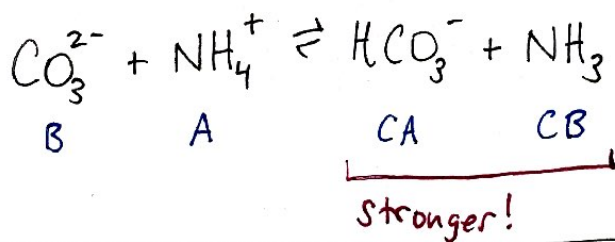 CO₃²⁻ + NH₄⁺ ⇌ HCO₃⁻ + NH₃
B A CA CB
stronger!